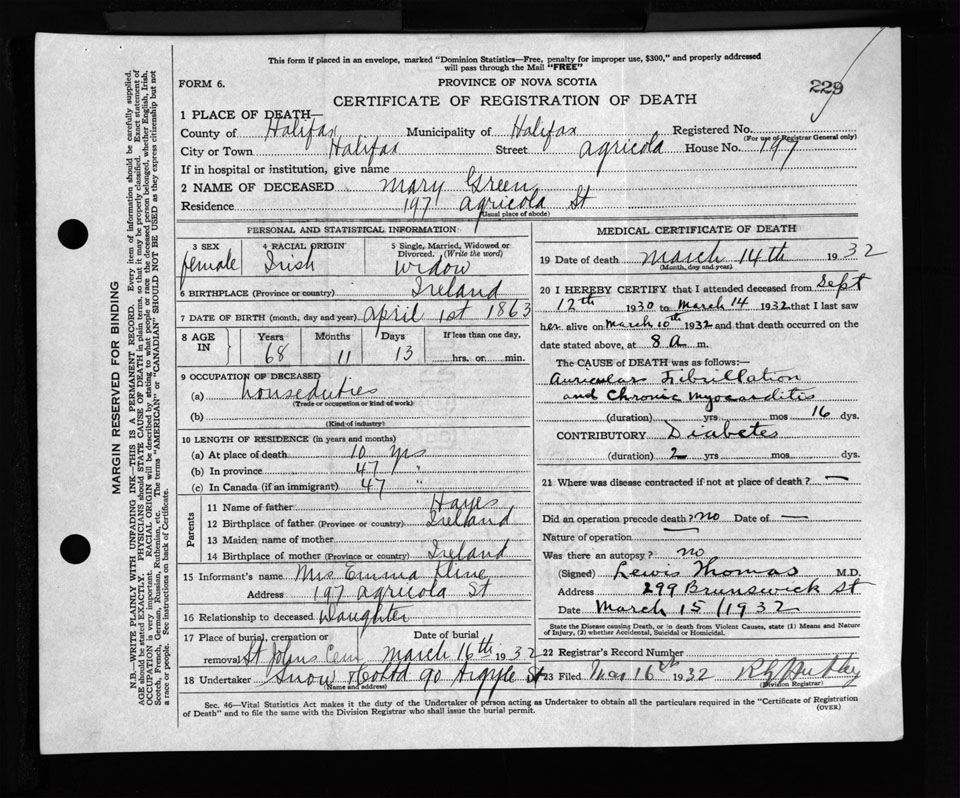 This form if placed in an envelope, marked "Dominion Statistics—Free, penalty for improper use, $300," and properly addressed
will pass through the Mail "FREE"
FORM 6.
PROVINCE OF NOVA SCOTIA
229
CERTIFICATE OF REGISTRATION OF DEATH
1 PLACE OF DEATH—
County of Halifax Municipality of Halifax Registered No.
(For use of Registrar General only)
City or Town Halifax Street Agricola House No. 197
If in hospital or institution, give name
2 NAME OF DECEASED Mary Green
Residence 197 Agricola St
(Usual place of abode)
PERSONAL AND STATISTICAL INFORMATION
3 SEX 4 RACIAL ORIGIN 5 Single, Married, Widowed or
Divorced. (Write the word)
female Irish Widow
6 BIRTHPLACE (Province or country) Ireland
7 DATE OF BIRTH (month, day and year) April 1st 1863
8 AGE IN Years Months Days If less than one day,
68 11 13 hrs. or min.
9 OCCUPATION OF DECEASED
(a) houseduties
(Trade or occupation or kind of work)
(b)
(Kind of industry)
10 LENGTH OF RESIDENCE (in years and months)
(a) At place of death 10 yrs
(b) In province 47 "
(c) In Canada (if an immigrant) 47 "
Parents
11 Name of father Hayes
12 Birthplace of father (Province or country) Ireland
13 Maiden name of mother
14 Birthplace of mother (Province or country) Ireland
15 Informant's name Mrs Emma Kline
Address 197 Agricola St
16 Relationship to deceased Daughter
17 Place of burial, cremation or Date of burial
removal St Johns Cem March 16th 1932
18 Undertaker Snow & Co Ltd 90 Argyle St
(Name and address)
MEDICAL CERTIFICATE OF DEATH
19 Date of death March 14th 1932
(Month, day and year)
20 I HEREBY CERTIFY that I attended deceased from Sept
12th 1930 to March 14 1932 that I last saw
her alive on March 10th 1932 and that death occurred on the
date stated above, at 8 a m.
The CAUSE OF DEATH was as follows:—
Auricular Fibrillation
and Chronic Myocarditis
(duration) yrs mos 16 dys.
CONTRIBUTORY Diabetes
(duration) 2 yrs mos dys.
21 Where was disease contracted if not at place of death? —
Did an operation precede death? no Date of —
Nature of operation —
Was there an autopsy? no
(Signed) Lewis Thomas M.D.
Address 299 Brunswick St
Date March 15/1932
State the Disease causing Death, or in death from Violent Causes, state (1) Means and
Nature of Injury, (2) whether Accidental, Suicidal or Homicidal.
22 Registrar's Record Number
23 Filed Mar 16th 1932
(Division Registrar)
Sec. 46—Vital Statistics Act makes it the duty of the Undertaker or person acting as Undertaker to obtain all the particulars required in the "Certificate of Registration
of Death" and to file the same with the Division Registrar who shall issue the burial permit.
(OVER)
MARGIN RESERVED FOR BINDING
N.B.—WRITE PLAINLY WITH UNFADING INK—THIS IS A PERMANENT RECORD. Every item of information should be carefully supplied.
AGE should be stated EXACTLY. PHYSICIANS should STATE CAUSE OF DEATH in plain terms, so that it may be properly classified. Exact statement of
OCCUPATION is very important. RACIAL ORIGIN will be described by stating to what people or race the deceased person belonged, whether English, Irish,
Scotch, French, German, Russian, Ruthenian, etc. The terms "AMERICAN" or "CANADIAN" SHOULD NOT BE USED as they express citizenship but not
a race or people. See instructions on back of Certificate.